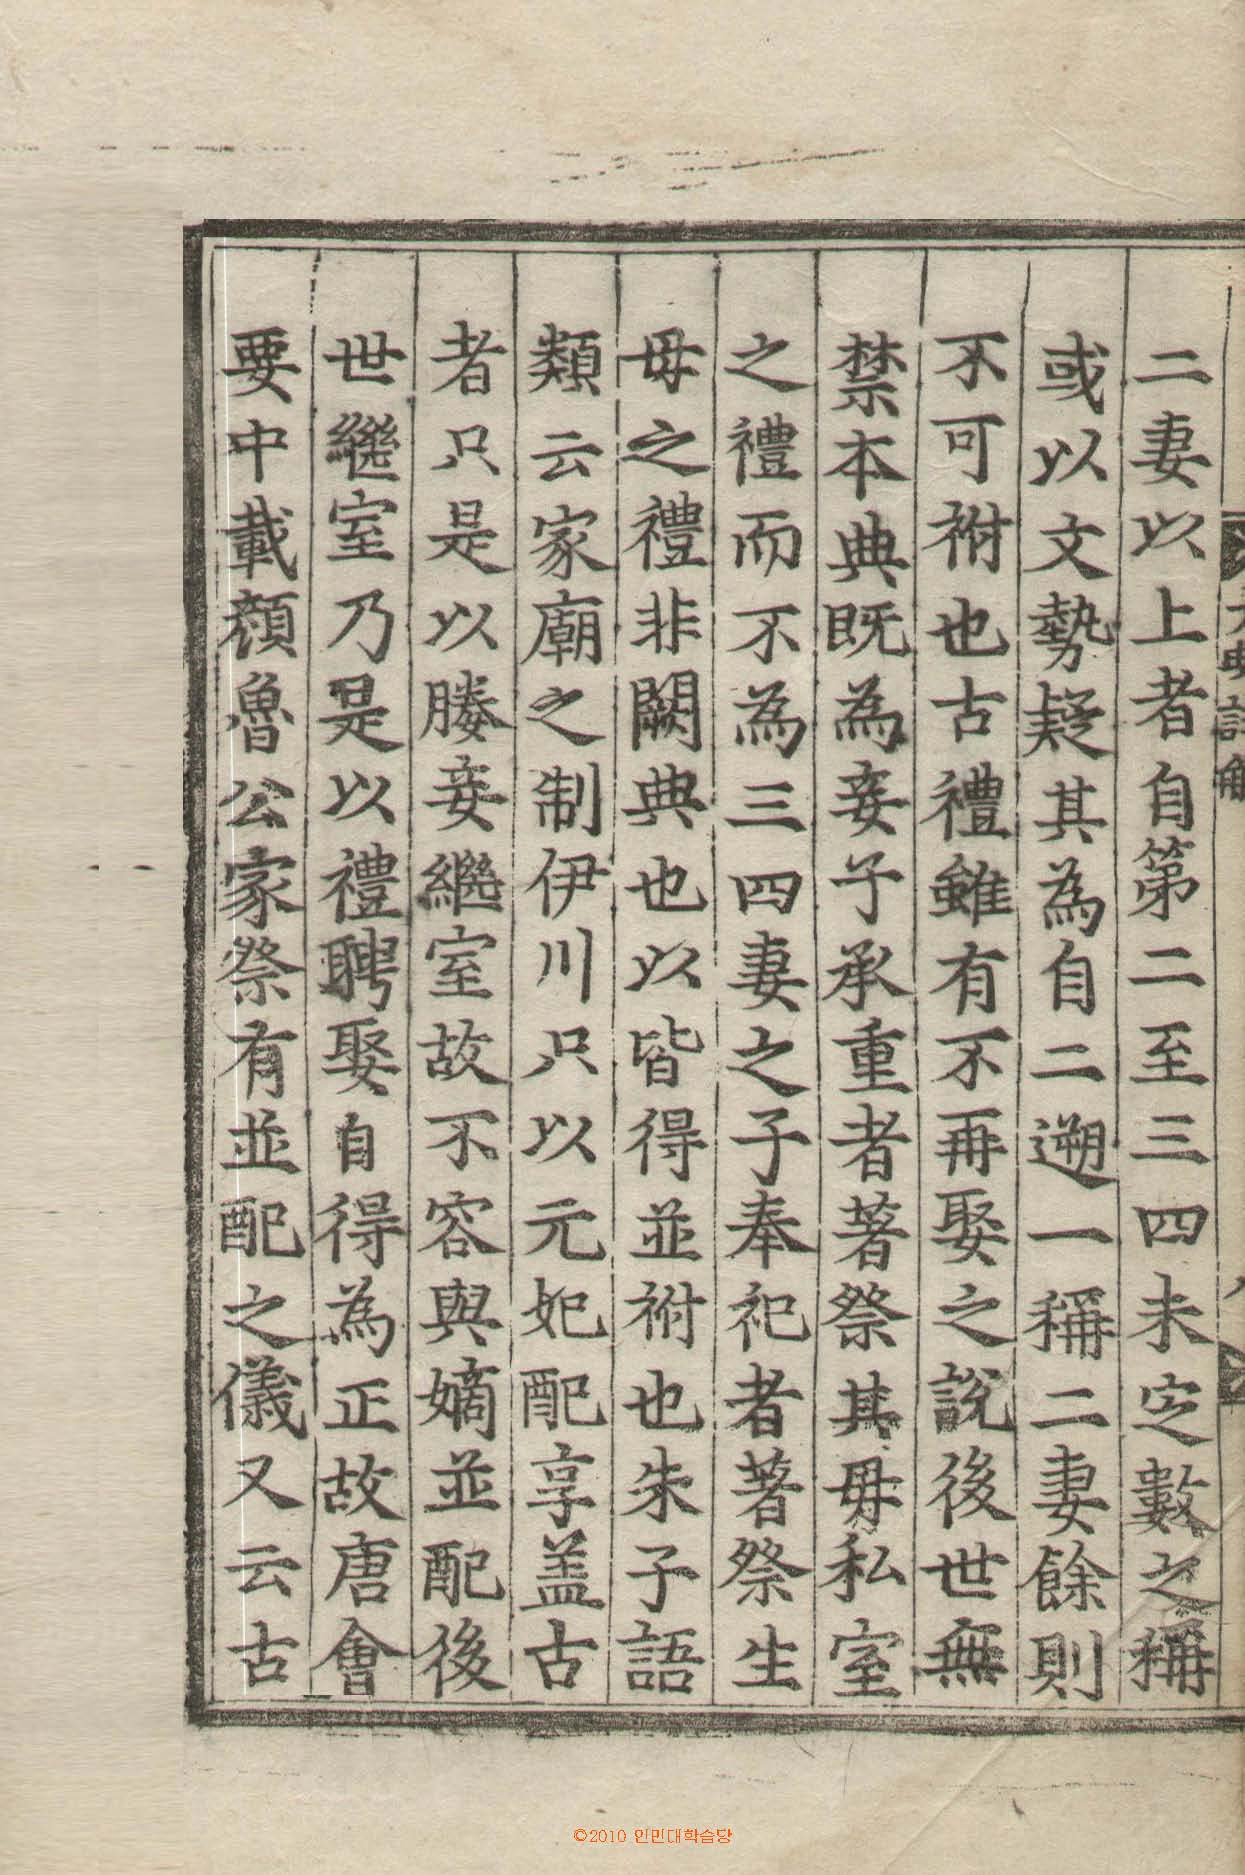 二妻以上者自第二至三四未定數之稱
或以文勢疑其為自二遡一稱二妻餘則
不可祔也古禮雖有不再娶之說後世無
禁本典既為妾子承重者著祭其母私室
之禮而不為三四妻之子奉祀者著祭生
母之禮非闕典也以皆得並祔也朱子語
類云家廟之制伊川只以元妃配享盖古
者只是以媵妾繼室故不容與嫡並配後
世繼室乃是以禮聘娶自得為正故唐會
要中載顔魯公家祭有並配之儀又云古
©2010 인민대학습당